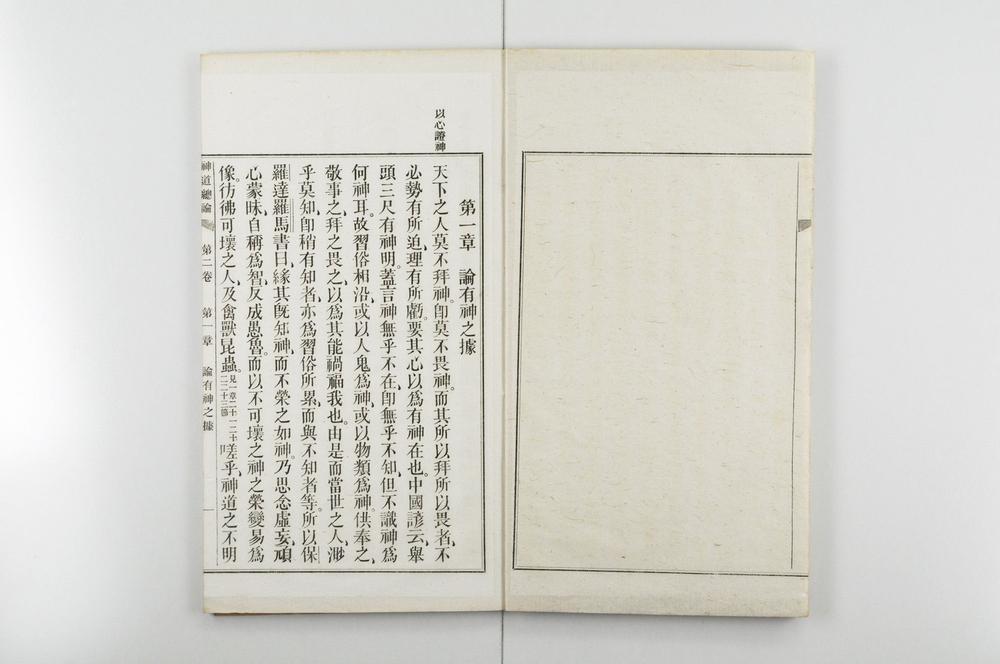 以心證神
第一章　論有神之據
天下之人莫不拜神。卽莫不畏神。而其所以拜所以畏者、不
必勢有所迫、理有所虧。要其心以為有神在也。中國諺云、舉
頭三尺有神明。蓋言神無乎不在、卽無乎不知、但不識神為
何神耳。故習俗相沿、或以人鬼為神、或以物類為神。供奉之、
敬事之、拜之畏之、以為其能禍福我也。由是而當世之人、渺
乎莫知、卽稍有知者、亦為習俗所累、而與不知者等。所以保
羅達羅馬書曰、緣其旣知神、而不榮之如神。乃思念虛妄、頑
心蒙昧、自稱為智、反成愚魯。而以不可壞之神之榮、變易為
像。彷彿可壞之人、及禽獸昆蟲。見一章二十一二十二二十三節嗟乎、神道之不明
神道總論　第二卷　第一章　論有神之據　一